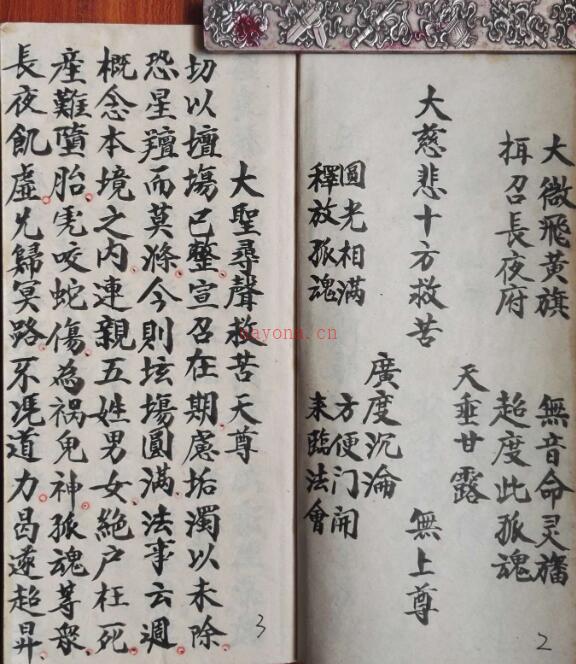 大微飛黄旗 無音命灵旛
揖召長夜府 超度此孤魂
天垂甘露
大慈悲十方救苦 無上尊
廣度沉淪
圓光相滿 方便门開
釋放孤魂 来臨法會
2
大聖尋聲救苦天尊
切以壇塲已整宣召在期慮垢濁以未除
恐星羶而莫滌今則坛塲圓滿法事云週
概念本境之内連親五姓男女絶户枉死
產難墮胎虎咬蛇傷為禍鬼神孤魂等衆
長夜飢虚兄歸冥路不凴道力曷遂超昇
3
nayona.cn